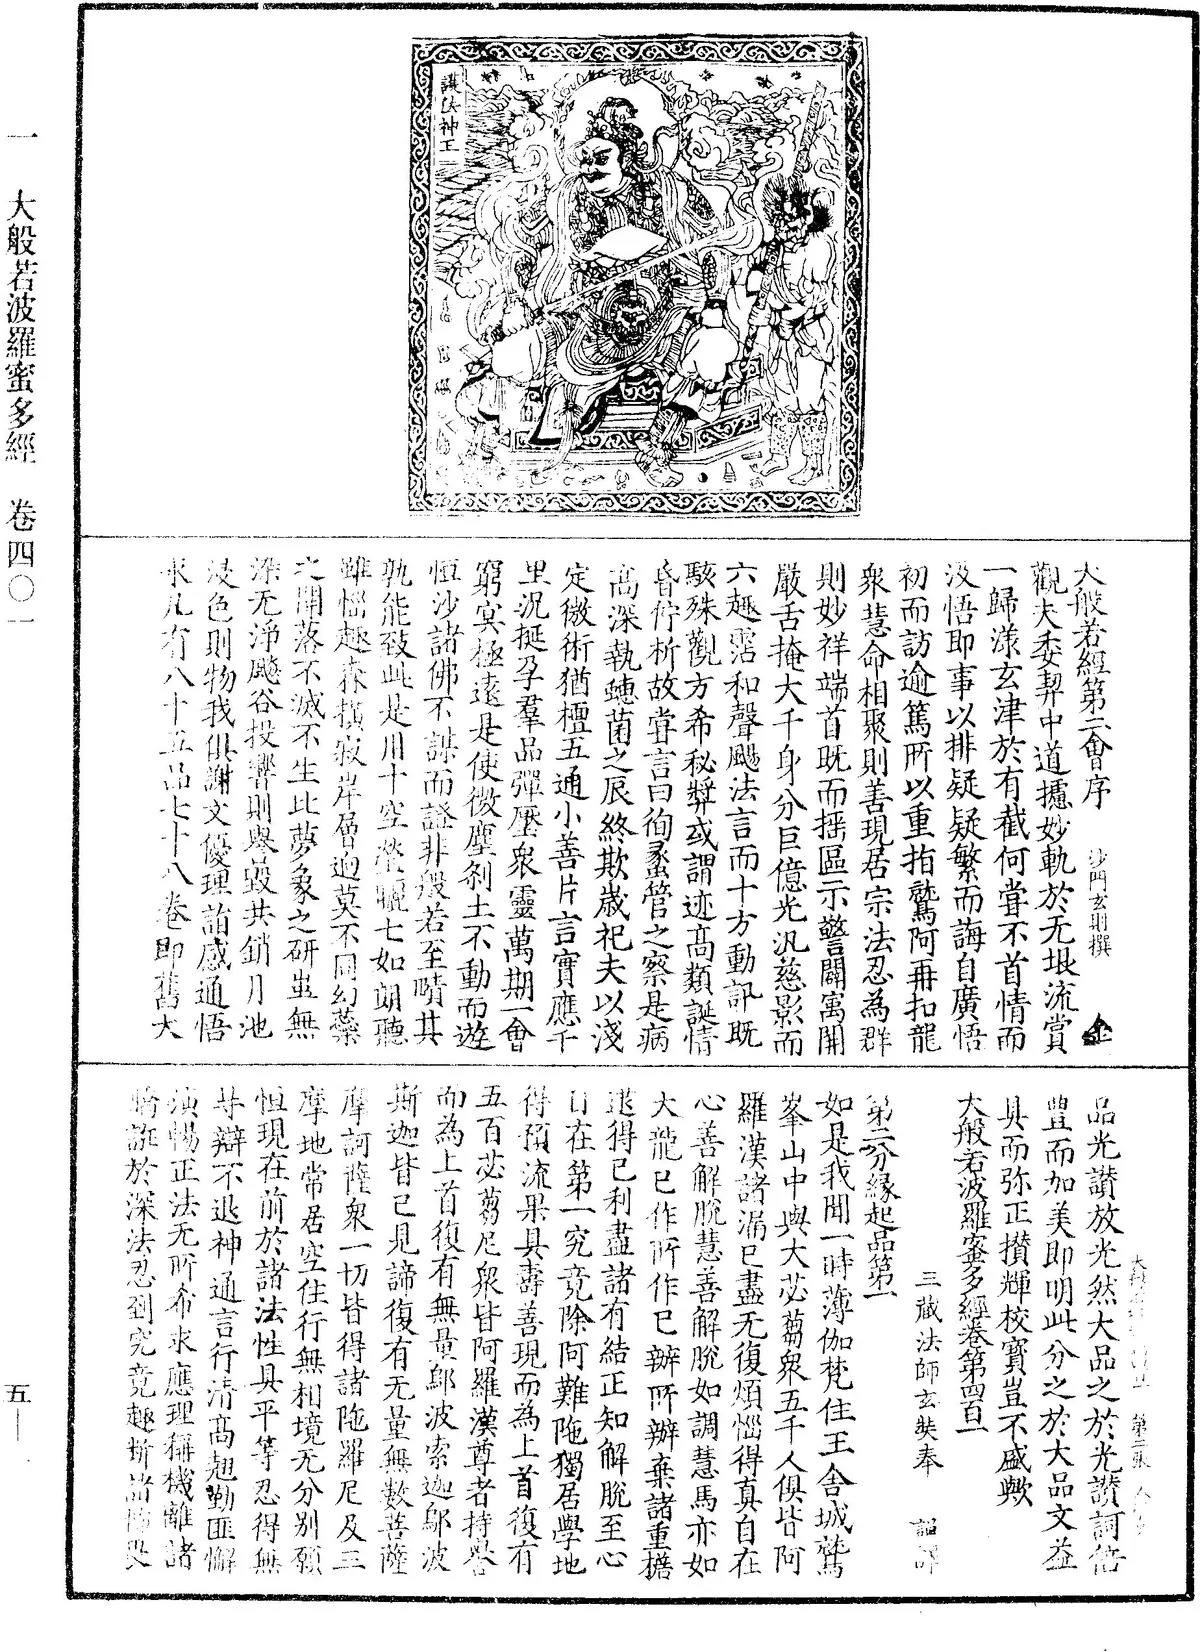 一　大般若波羅蜜多經　卷四〇一
五—一
護法神王
大般若經第二會序　沙門玄則撰
觀夫委契中道攄妙軌於无垠流賞
一歸漾玄津於有截何甞不首情而
汲悟即事以排疑疑繁而誨自廣悟
初而訪逾篤所以重指鷲阿再扣龍
衆慧命相聚則善現居宗法忍為群
則妙祥端首既而搖區示警闢寓開
嚴舌掩大千身分巨億光汎慈影而
六趣霑和聲颺法言而十方動訊既
駭殊觀方希秘弉或謂迹高類誕情
昏佇析故甞言曰徇彖管之察是病
高深執蟪菌之辰終欺歲祀夫以淺
定微術猶檀五通小善片言實應千
里況挺孕羣品彈壓衆靈萬期一會
窮冥極遠是使微塵剎土不動而遊
恒沙諸佛不謀而證非般若至賾其
孰能致此是用十空瑩曬七如朗聽
雖惱趣森撗寂岸層逈莫不同幻蘂
之開落不滅不生比夢象之妍蚩無
染无淨飈谷投響則譽毀共銷月池
浸色則物我俱謝文優理詣感通悟
永凡有八十五品七十八卷即舊大
品光讃放光然大品之於光讃詞倍
豊而加美即明此分之於大品文益
具而弥正攅輝校寶豈不盛歟
大般若波羅蜜多經卷第四百一
三藏法師玄奘奉　詔譯
第二分緣起品第一
如是我聞一時薄伽梵住王舍城鷲
峯山中與大苾芻衆五千人俱皆阿
羅漢諸漏已盡无復煩惱得真自在
心善解脫慧善解脫如調慧馬亦如
大龍已作所作已辦所辦棄諸重擔
逮得己利盡諸有結正知解脫至心
自在第一究竟除阿難陁獨居學地
得預流果具壽善現而為上首復有
五百苾芻尼衆皆阿羅漢尊者持譽
而為上首復有無量鄔波索迦鄔波
斯迦皆已見諦復有无量無數菩薩
摩訶薩衆一切皆得諸陁羅尼及三
摩地常居空住行無相境无分別願
恒現在前於諸法性具平等忍得無
㝵辯不退神通言行清高翹勤匪懈
演暢正法无所希求應理稱機離諸
矯誑於深法忍到究竟趣斷諸怖畏